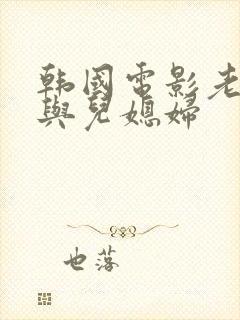 韩國電影老
與兒媳婦
也落